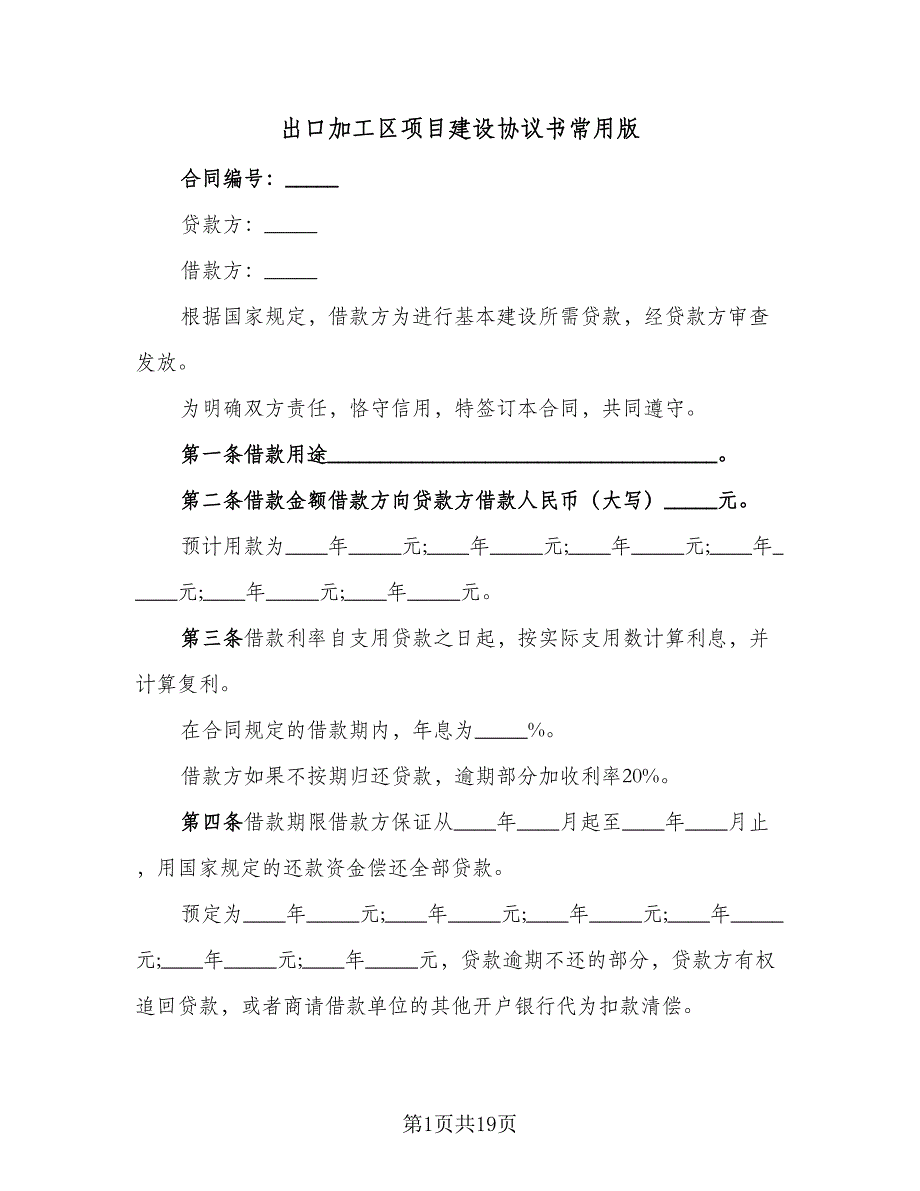 出口加工区项目建设协议书常用版
合同编号：_____
贷款方：_____
借款方：_____
根据国家规定，借款方为进行基本建设所需贷款，经贷款方审查
发放。
为明确双方责任，恪守信用，特签订本合同，共同遵守。
第一条借款用途_____________________________________。
第二条借款金额借款方向贷款方借款人民币（大写）_____元。
预计用款为____年_____元;____年_____元;____年_____元;____年_
____元;____年_____元;____年_____元。
第三条借款利率自支用贷款之日起，按实际支用数计算利息，并
计算复利。
在合同规定的借款期内，年息为_____%。
借款方如果不按期归还贷款，逾期部分加收利率20%。
第四条借款期限借款方保证从____年____月起至____年____月止
，用国家规定的还款资金偿还全部贷款。
预定为____年_____元;____年_____元;____年_____元;____年_____
元;____年_____元;____年_____元，贷款逾期不还的部分，贷款方有权
追回贷款，或者商请借款单位的其他开户银行代为扣款清偿。
第1页共19页